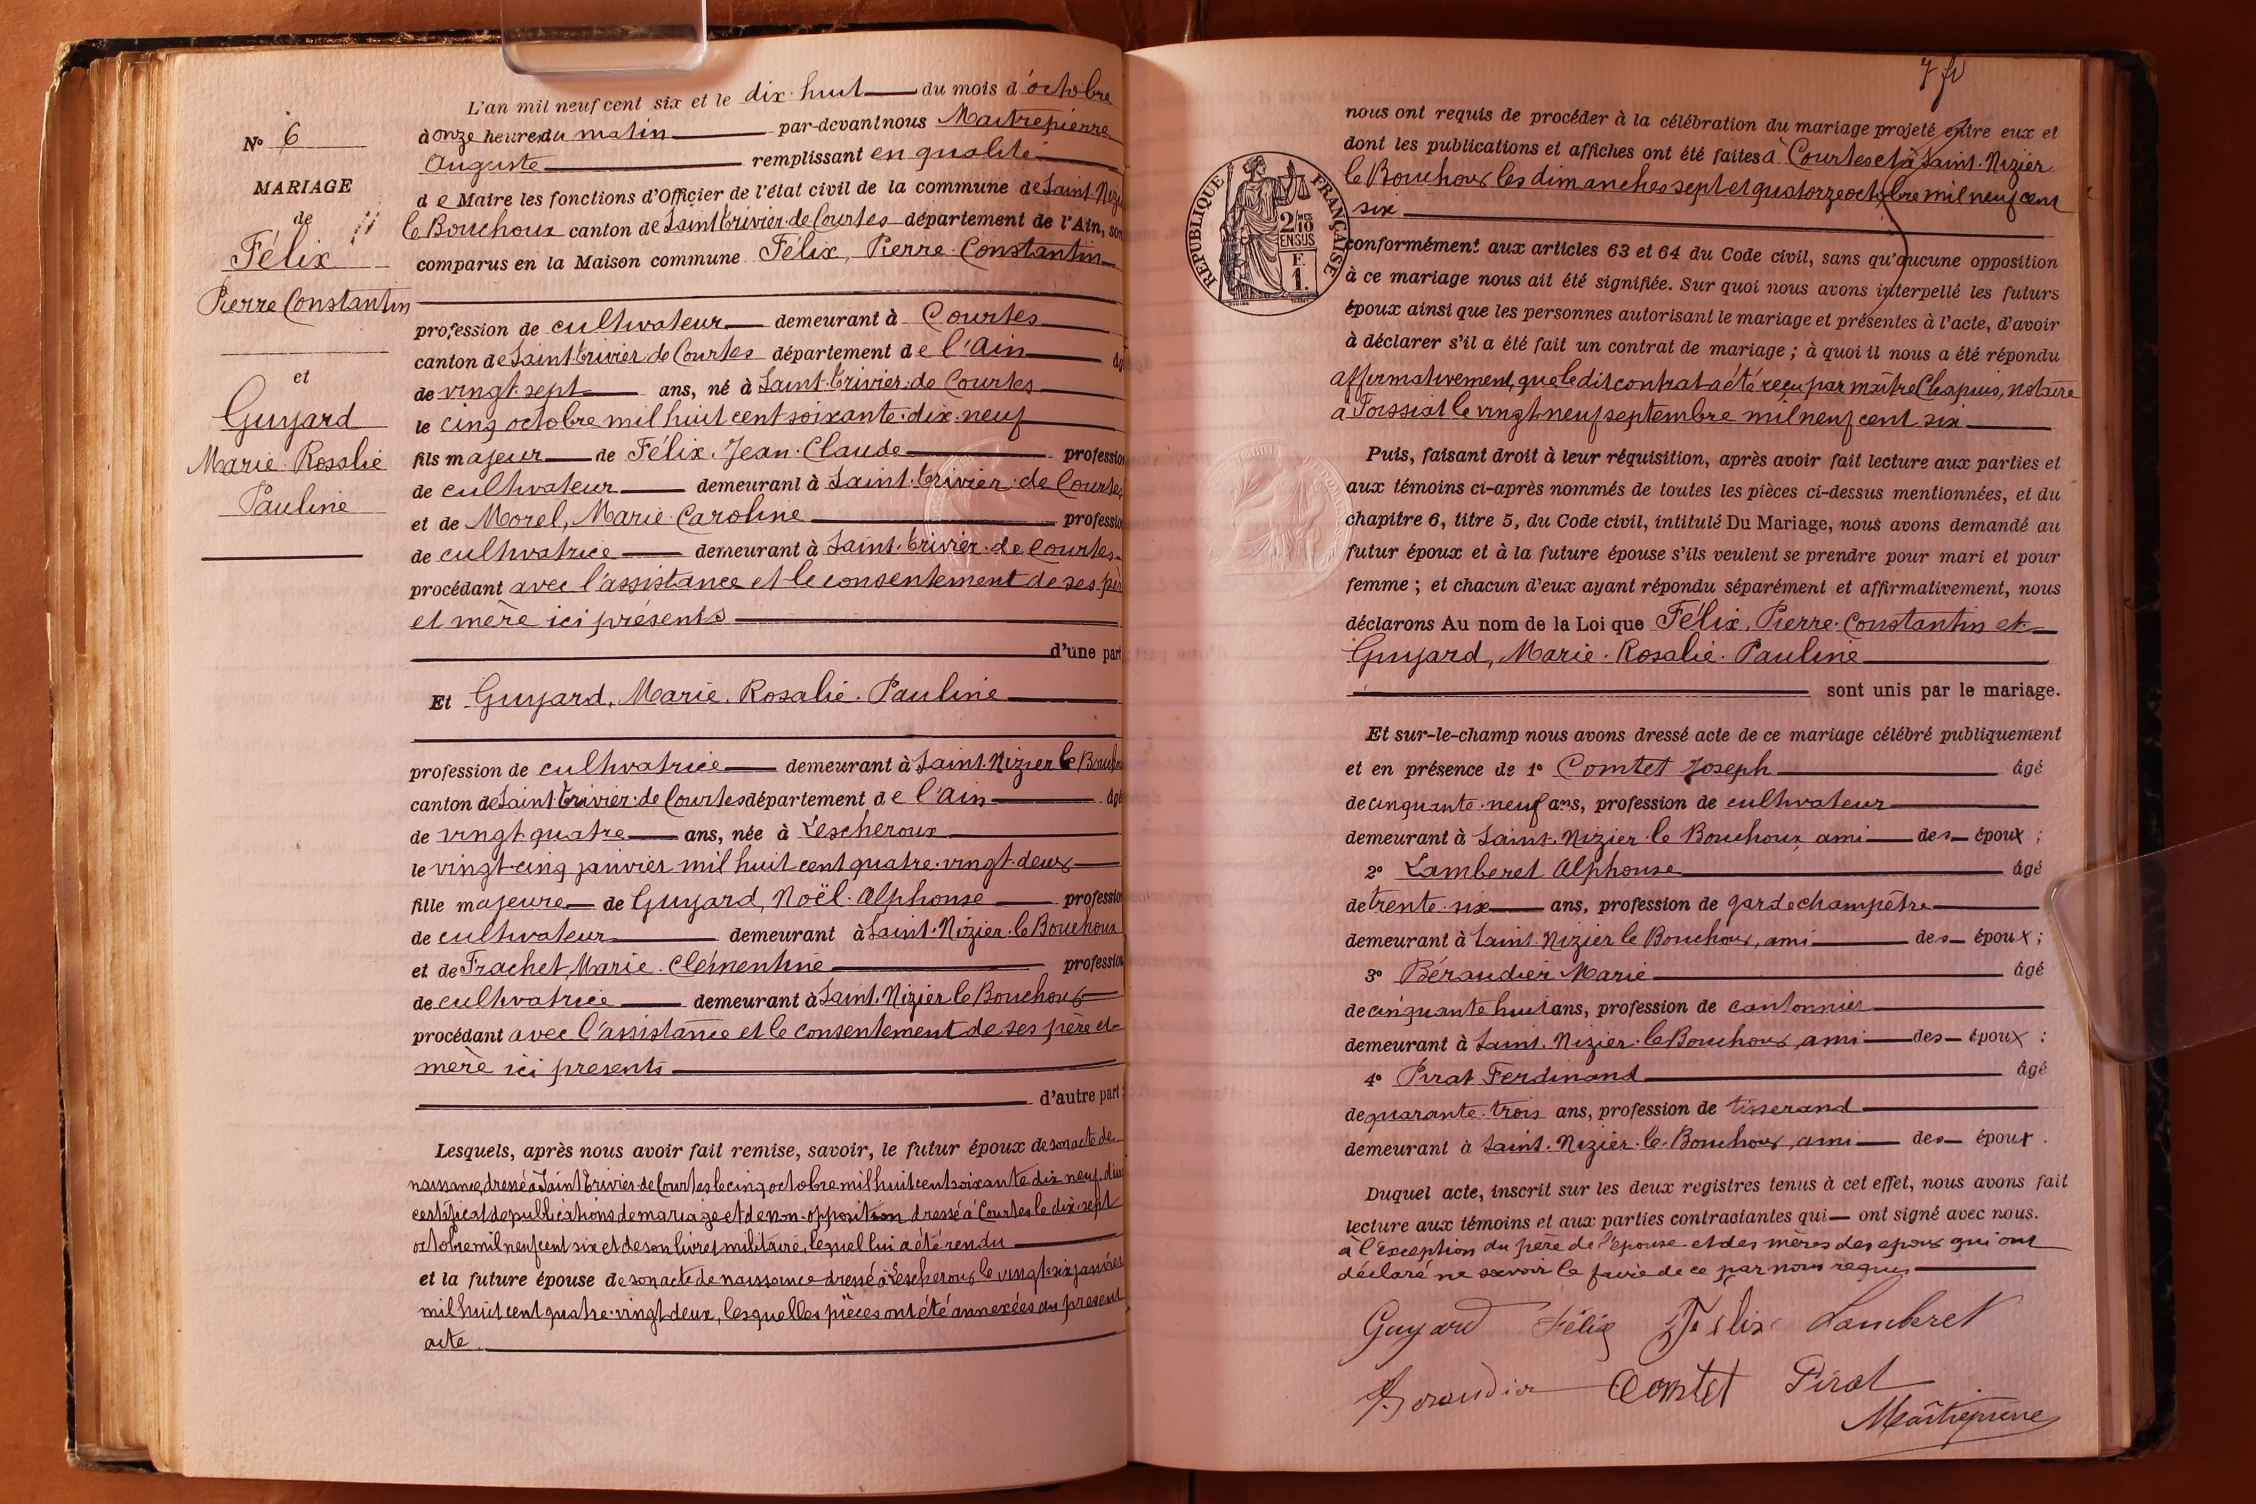 N° 6
MARIAGE
de
Félix
Pierre Constantin
et
Guyard
Marie Rosalie
Pauline
L'an mil neuf cent six et le dix-huit du mois d'octobre
à onze heures du matin par-devant nous Maîtrepierre
Auguste remplissant en qualité
de Maire les fonctions d'Officier de l'état civil de la commune de Saint Nizier
le Bouchoux canton de Saint Trivier de Courtes département de l'Ain, sont
comparus en la Maison commune Félix, Pierre Constantin
profession de cultivateur demeurant à Courtes
canton de Saint Trivier de Courtes département de l'Ain âgé
de vingt-sept ans, né à Saint-Trivier-de Courtes
le cinq octobre mil huit cent soixante-dix-neuf
fils majeur de Félix, Jean-Claude profession
de cultivateur demeurant à Saint-Trivier-de Courtes
et de Morel, Marie-Caroline profession
de cultivatrice demeurant à Saint-Trivier-de Courtes
procédant avec l'assistance et le consentement de ses père
et mère ici présents
d'une part
Et Guyard, Marie-Rosalie-Pauline
profession de cultivatrice demeurant à Saint-Nizier le Bouchoux
canton de Saint-Trivier-de Courtes département de l'Ain âgé
de vingt-quatre ans, née à Lescheroux
le vingt-cinq janvier mil huit cent quatre-vingt-deux
fille majeure de Guyard, Noël-Alphonse profession
de cultivateur demeurant à Saint-Nizier-le Bouchoux
et de Frachet, Marie-Clémentine profession
de cultivatrice demeurant à Saint-Nizier le Bouchoux
procédant avec l'assistance et le consentement de ses père et
mère ici présents
d'autre part;
Lesquels, après nous avoir fait remise, savoir, le futur époux de son acte de
naissance, dressé à Saint Trivier-de Courtes le cinq octobre mil huit cent soixante dix neuf, d'un
certificat de publications de mariage et de non-opposition dressé à Courtes le dix-sept
octobre mil neuf cent six et de son livret militaire, lequel lui a été rendu
et la future épouse de son acte de naissance dressé à Lescheroux le vingt-six janvier
mil huit cent quatre-vingt deux, lesquelles pièces ont été annexées au présent
acte
7 fo
nous ont requis de procéder à la célébration du mariage projeté entre eux et
dont les publications et affiches ont été faites à Courtes et à Saint-Nizier
le Bouchoux les dimanches sept et quatorze octobre mil neuf cent
six
RÉPUBLIQUE FRANÇAISE
2/10
EN SUS
F.
1.
conformément aux articles 63 et 64 du Code civil, sans qu'aucune opposition
à ce mariage nous ait été signifiée. Sur quoi nous avons interpellé les futurs
époux ainsi que les personnes autorisant le mariage et présentes à l'acte, d'avoir
à déclarer s'il a été fait un contrat de mariage; à quoi il nous a été répondu
affirmativement, que le dit contrat a été reçu par maître Chapuis, notaire
à Foissiat le vingt neuf septembre mil neuf cent six
Puis, faisant droit à leur réquisition, après avoir fait lecture aux parties et
aux témoins ci-après nommés de toutes les pièces ci-dessus mentionnées, et du
chapitre 6, titre 5, du Code civil, intitulé Du Mariage, nous avons demandé au
futur époux et à la future épouse s'ils veulent se prendre pour mari et pour
femme; et chacun d'eux ayant répondu séparément et affirmativement, nous
déclarons Au nom de la Loi que Félix, Pierre-Constantin et
Guyard, Marie-Rosalie-Pauline
sont unis par le mariage.
Et sur-le-champ nous avons dressé acte de ce mariage célébré publiquement
et en présence de 1° Comtet Joseph âgé
de cinquante-neuf ans, profession de cultivateur
demeurant à Saint-Nizier-le Bouchoux, ami des époux;
2° Lamberet Alphonse âgé
de trente-six ans, profession de garde champêtre
demeurant à Saint-Nizier le Bouchoux, ami des époux;
3° Béraudier Marie âgé
de cinquante huit ans, profession de cantonnier
demeurant à Saint-Nizier-le Bouchoux, ami des époux;
4° Pirat Ferdinand âgé
de quarante-trois ans, profession de tisserand
demeurant à Saint-Nizier-le-Bouchoux, ami des époux.
Duquel acte, inscrit sur les deux registres tenus à cet effet, nous avons fait
lecture aux témoins et aux parties contractantes qui ont signé avec nous.
à l'exception du père de l'épouse et des mères des époux qui ont
déclaré ne savoir le faire de ce par nous requis
Guyard Félix Félix Lamberet
Beraudier Comtet Pirat
Maîtrepierre